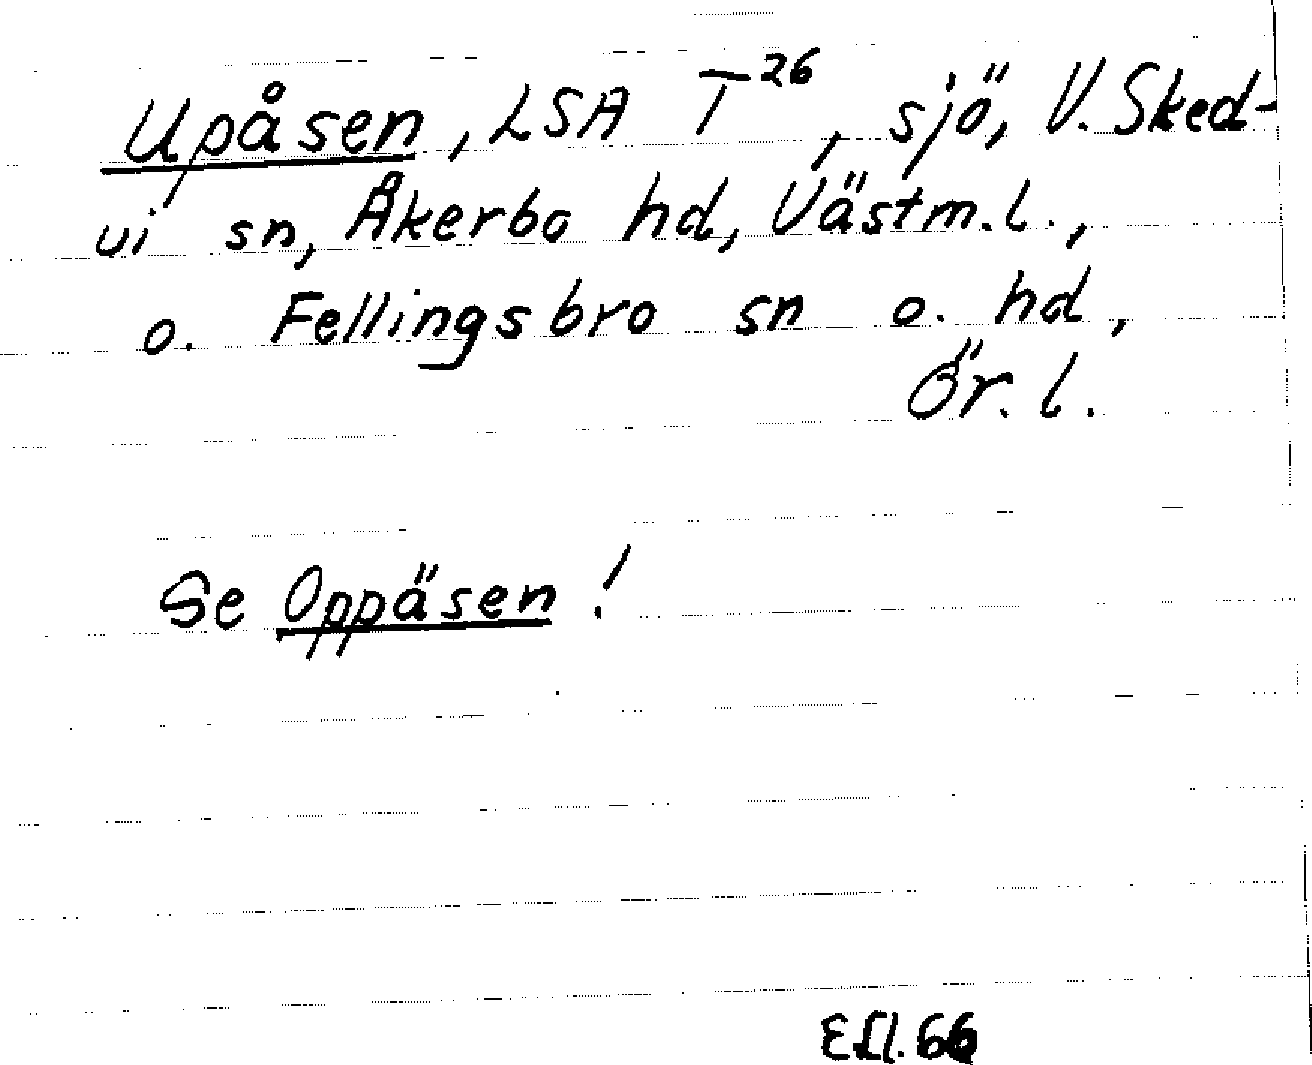 Upåsen, LSA T²⁶, sjö, V. Sked-
vi sn, Åkerbo hd, Västm. l.,
o. Fellingsbro sn o. hd,
Ör. l.
Se Oppåsen!